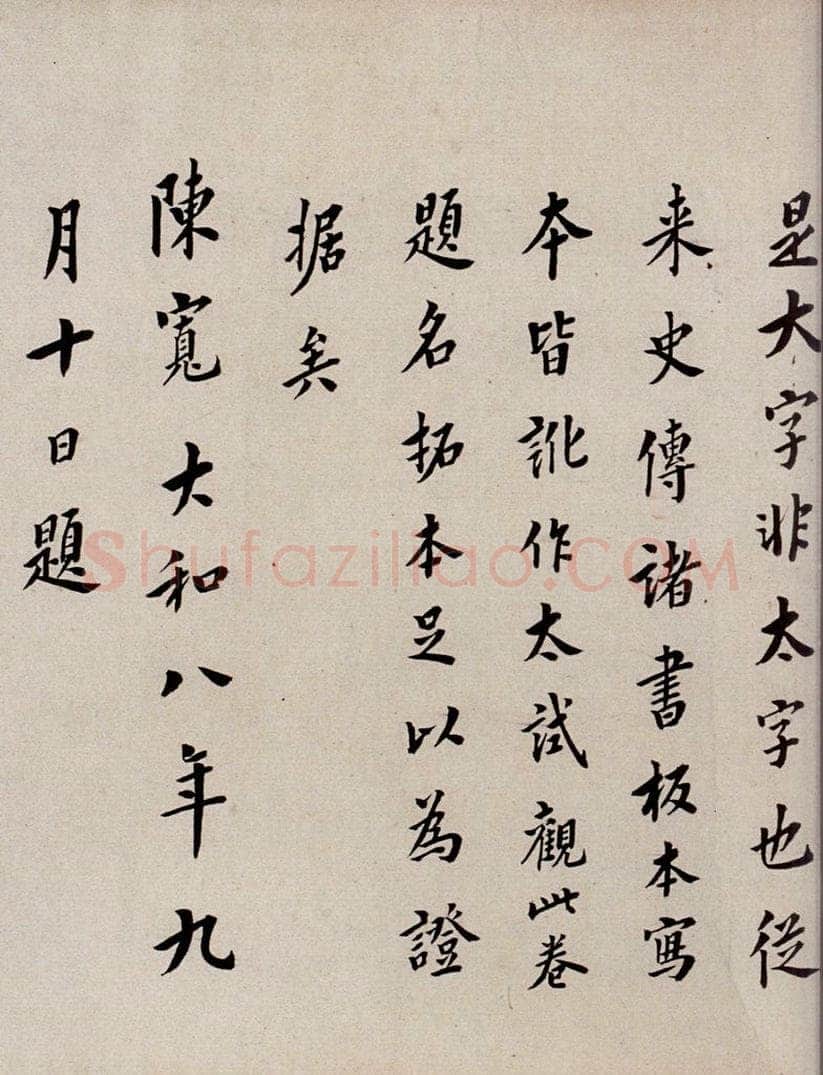 是大字非太字也從
来史傳諸書板本寫
本皆訛作太試觀此卷
題名拓本足以為證
据矣
陳寬大和八年九
月十日題
Shufaziliao.COM